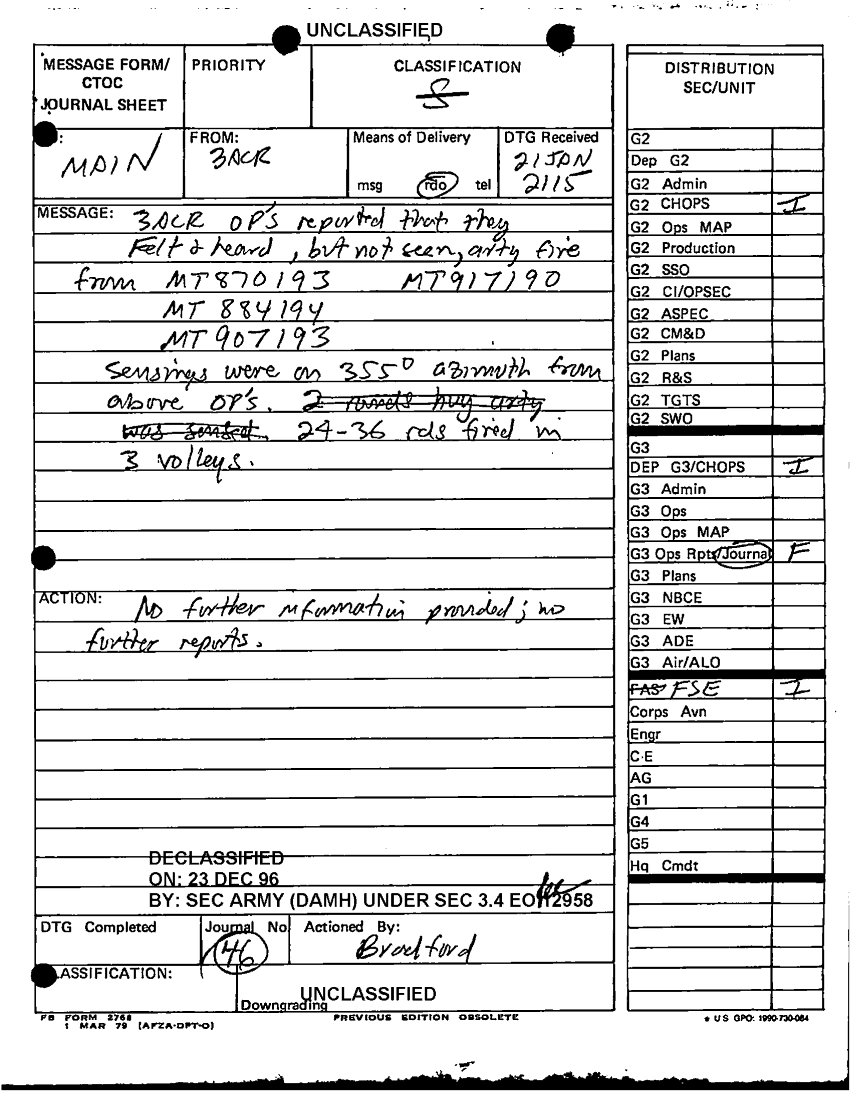 UNCLASSIFIED
MESSAGE FORM/
CTOC
JOURNAL SHEET
PRIORITY
CLASSIFICATION
S
MAIN
FROM:
3ACR
Means of Delivery
msg rdo tel
DTG Received
21 JAN
2115
MESSAGE: 3ACR OP's reported that they
Felt & heard, but not seen, arty fire
from MT870193 MT917190
MT 884194
MT 907193
Sensings were on 355° azimuth from
above OP's. 2 rounds hvy arty
was sensed. 24-36 rds fired in
3 volleys.
ACTION: No further information provided; no
further reports.
DECLASSIFIED
ON: 23 DEC 96
BY: SEC ARMY (DAMH) UNDER SEC 3.4 EO 12958
DTG Completed
Journal No
46
Actioned By:
Bradford
ASSIFICATION:
UNCLASSIFIED
Downgrading
FB FORM 2768
1 MAR 79 (AFZA-DPT-O)
PREVIOUS EDITION OBSOLETE
DISTRIBUTION
SEC/UNIT
G2
Dep G2
G2 Admin
G2 CHOPS I
G2 Ops MAP
G2 Production
G2 SSO
G2 CI/OPSEC
G2 ASPEC
G2 CM&D
G2 Plans
G2 R&S
G2 TGTS
G2 SWO
G3
DEP G3/CHOPS I
G3 Admin
G3 Ops
G3 Ops MAP
G3 Ops Rpts/Journal F
G3 Plans
G3 NBCE
G3 EW
G3 ADE
G3 Air/ALO
FAS FSE I
Corps Avn
Engr
C-E
AG
G1
G4
G5
Hq Cmdt
★ US GPO: 1990-730-084